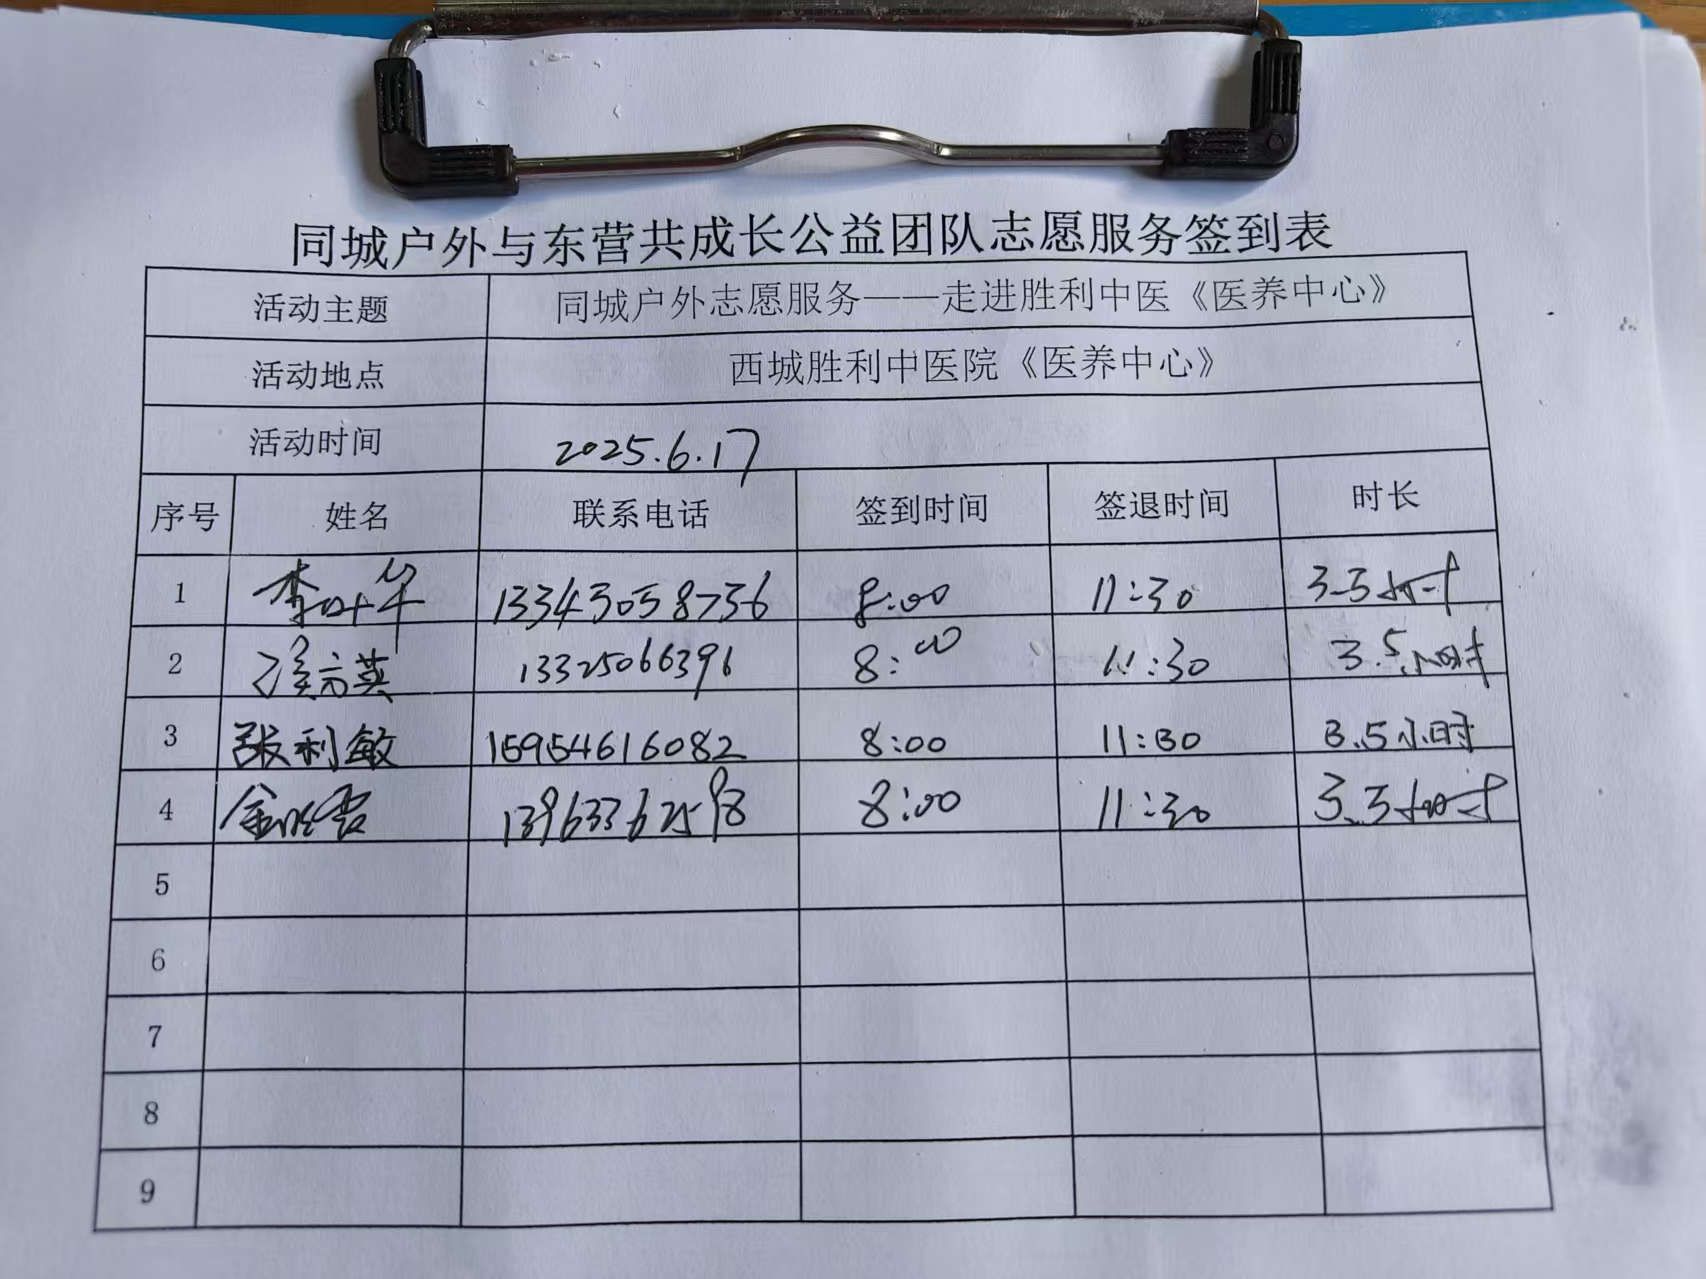 同城户外与东营共成长公益团队志愿服务签到表
活动主题 同城户外志愿服务——走进胜利中医《医养中心》
活动地点 西城胜利中医院《医养中心》
活动时间 2025.6.17
序号 姓名 联系电话 签到时间 签退时间 时长
1 李叶华 13343058736 8:00 11:30 3.5小时
2 英 13325066396 8:00 11:30 3.5小时
3 张利敏 15954616082 8:00 11:30 3.5小时
4 金 13963362598 8:00 11:30 3.5小时
5
6
7
8
9